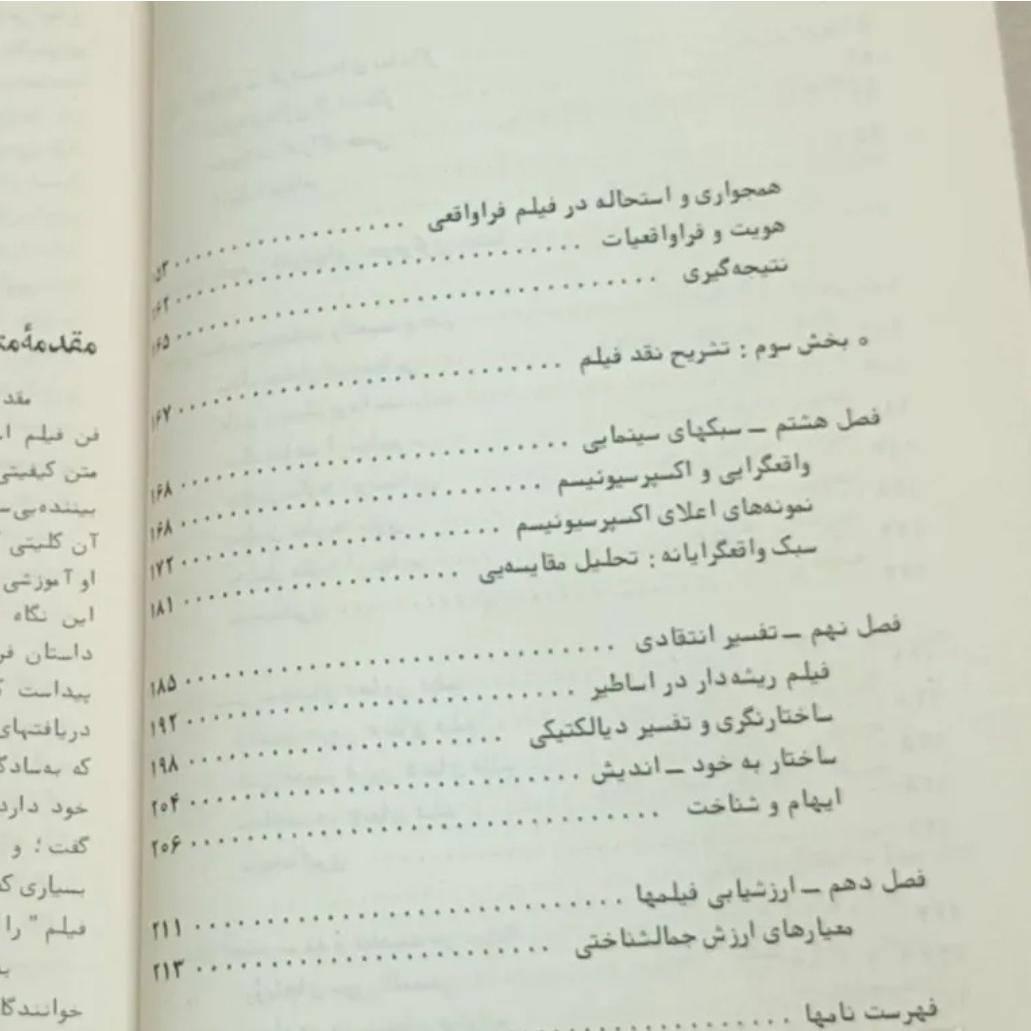 همجواری و استحاله در فیلم فراواقعی
هویت و فراواقعیات ۱۶۲
نتیجه‌گیری ۱۶۵
○ بخش سوم : تشریح نقد فیلم ۱۶۷
فصل هشتم ــ سبکهای سینمایی ۱۶۸
واقعگرایی و اکسپرسیونیسم ۱۶۸
نمونه‌های اعلای اکسپرسیونیسم ۱۷۲
سبک واقعگرایانه : تحلیل مقایسه‌یی ۱۸۱
فصل نهم ــ تفسیر انتقادی ۱۸۵
فیلم ریشه‌دار در اساطیر ۱۹۲
ساختارنگری و تفسیر دیالکتیکی ۱۹۸
ساختار به خود ــ اندیش ۲۰۴
ایهام و شناخت ۲۰۶
فصل دهم ــ ارزشیابی فیلمها ۲۱۱
معیارهای ارزش جمالشناختی ۲۱۳
فهرست نامها
مقدمهٔ
فن فیلم
متن کیفیتی
آن کلیتی
او آموزشی
این نگاه
داستان
پیداست
دریافتهای
که
خود دارد
گفت ؛ و
بسیاری
فیلم" را